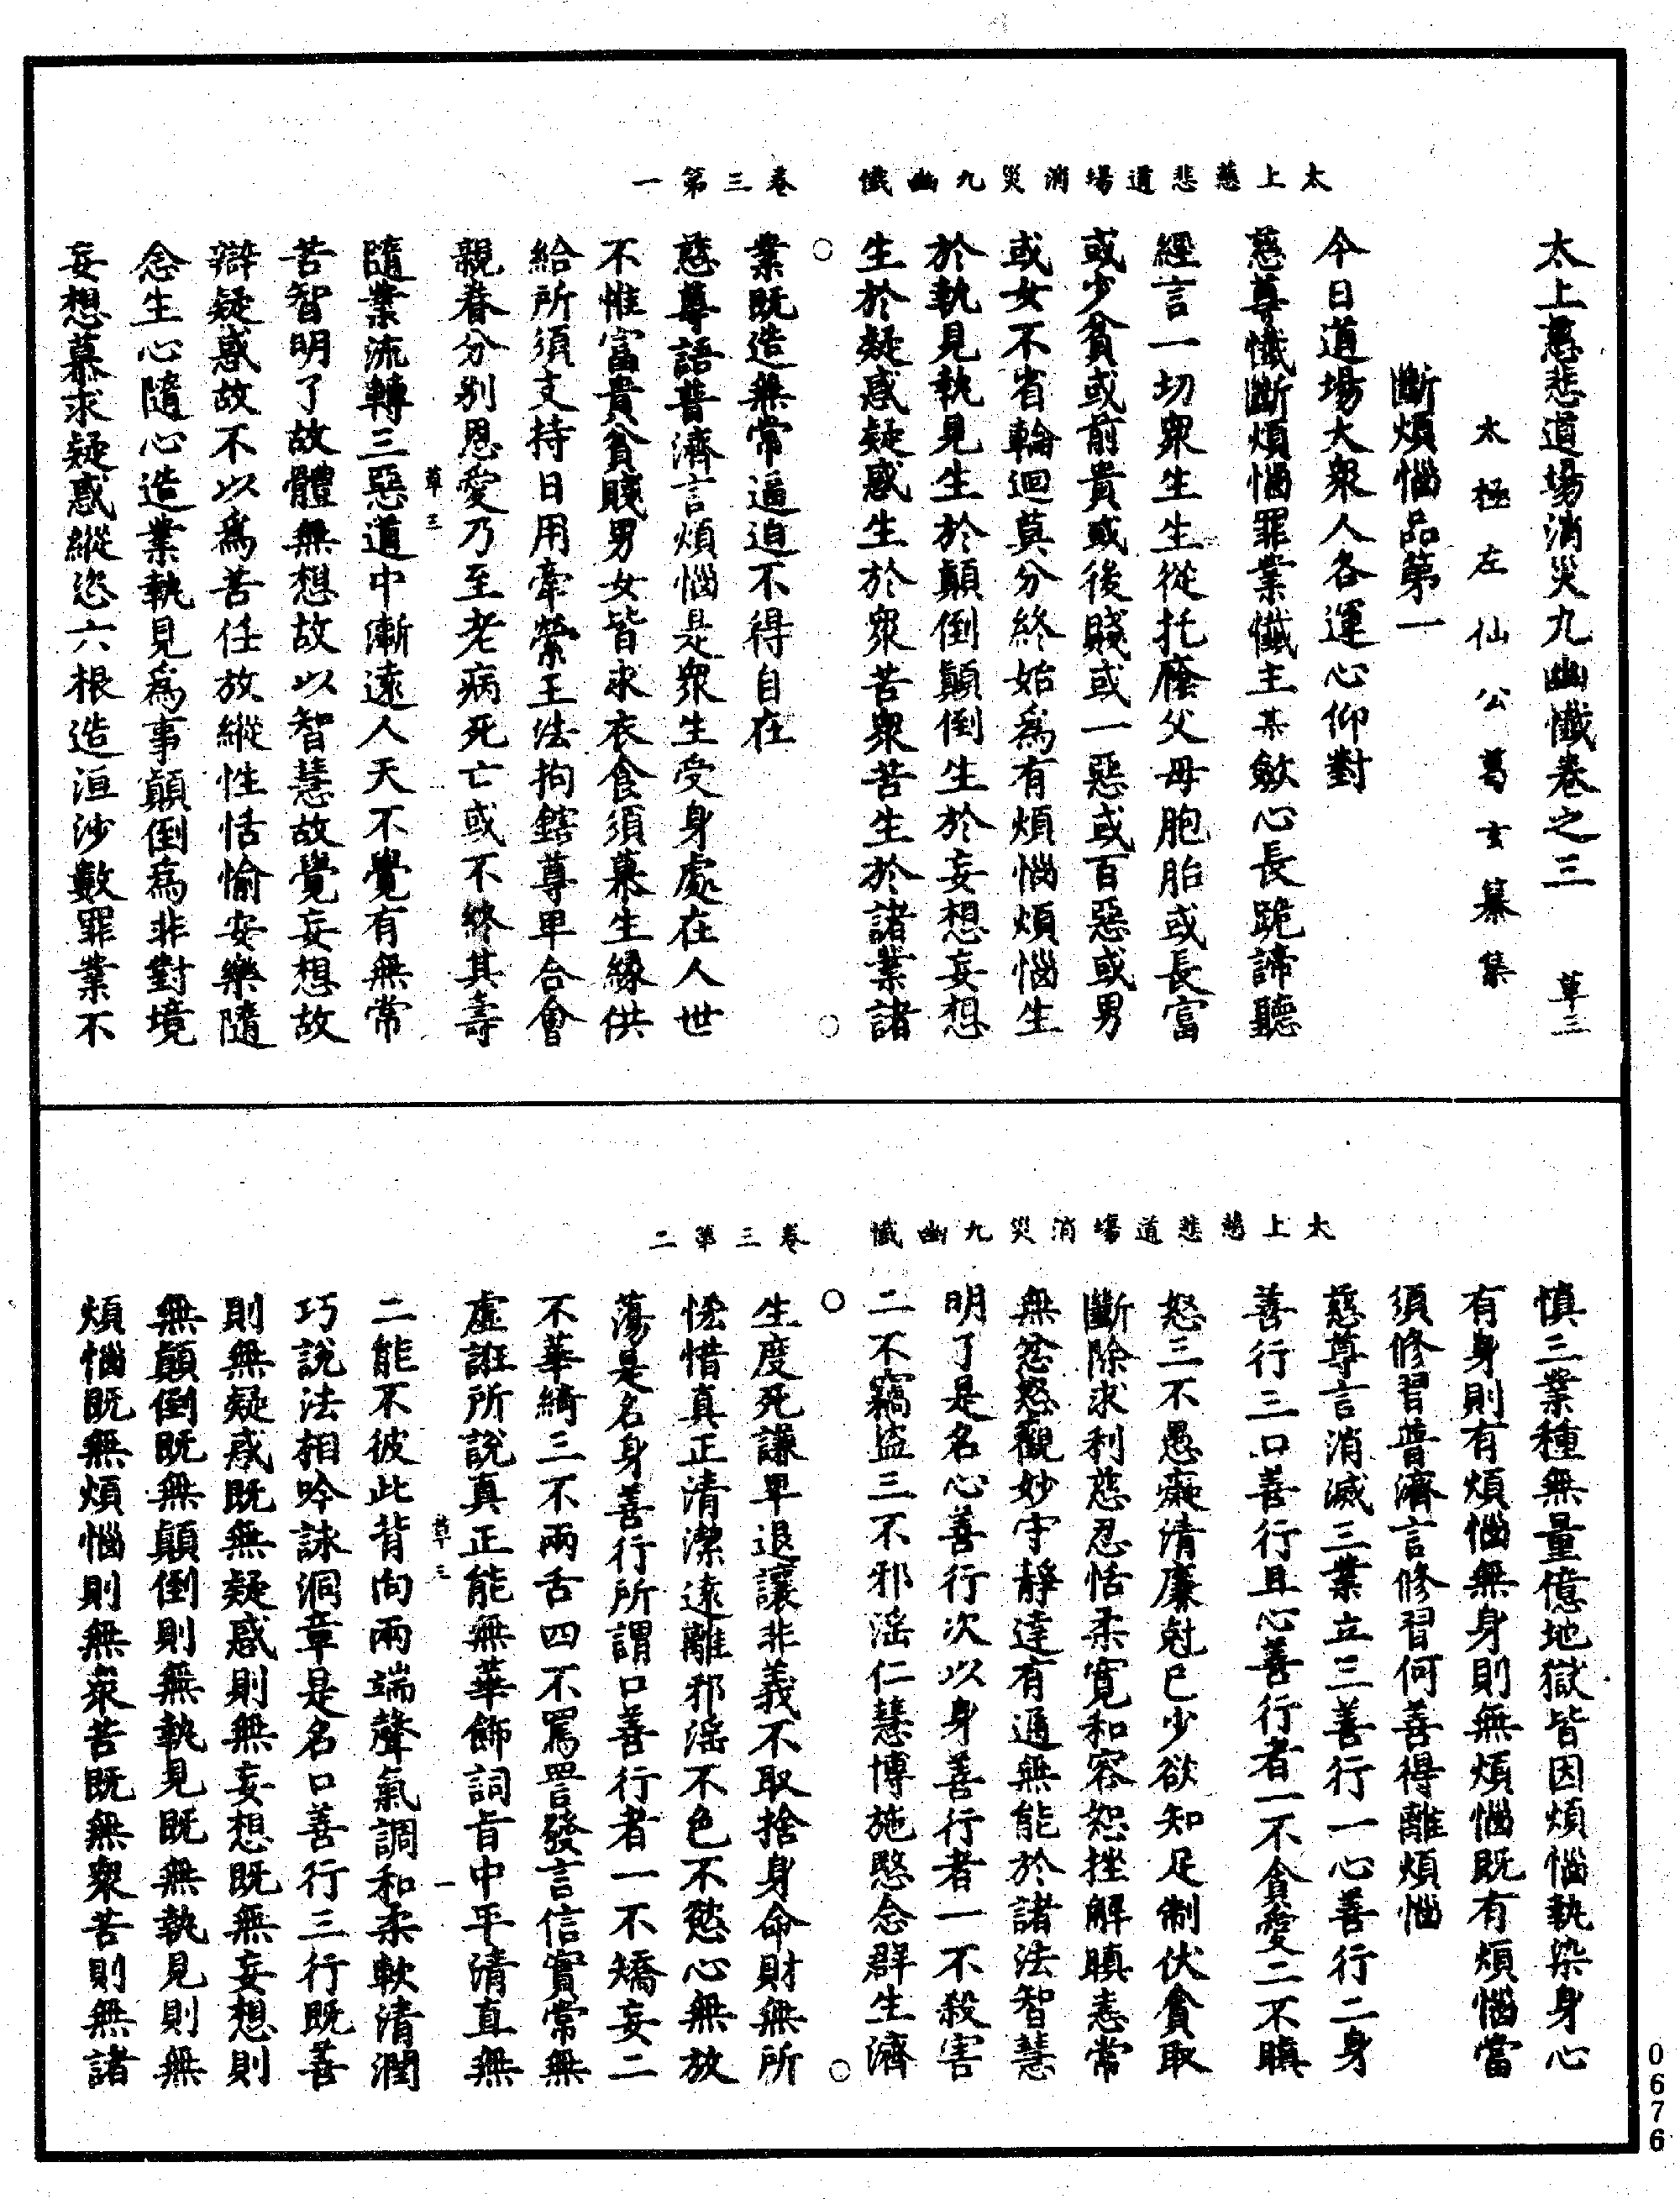 太上慈悲道場消災九幽懺　卷三第一
太上慈悲道場消災九幽懺卷之三　草三
太極左仙公葛玄纂集
斷煩惱品第一
今日道場大衆人各運心仰對
慈尊懺斷煩惱罪業懺主某斂心長跪諦聽
經言一切衆生生從托廕父母胞胎或長富
或少貧或前貴或後賤或一惡或百惡或男
或女不省輪迴莫分終始爲有煩惱煩惱生
於執見執見生於顛倒顛倒生於妄想妄想
生於疑惑疑惑生於衆苦衆苦生於諸業諸
業既造無常逼迫不得自在
慈尊語普濟言煩惱是衆生受身處在人世
不惟富貴貧賤男女皆求衣食須慕生緣供
給所須支持日用牽縈王法拘鎋尊卑合會
親眷分別恩愛乃至老病死亡或不終其壽
草三
隨業流轉三惡道中漸遠人天不覺有無常
苦智明了故體無想故以智慧故覺妄想故
辯疑惑故不以爲苦任放縱性恬愉安樂隨
念生心隨心造業執見爲事顛倒爲非對境
妄想慕求疑惑縱恣六根造洹沙數罪業不
太上慈悲道場消災九幽懺　卷三第二
慎三業種無量億地獄皆因煩惱執染身心
有身則有煩惱無身則無煩惱既有煩惱當
須修習普濟言修習何善得離煩惱
慈尊言消滅三業立三善行一心善行二身
善行三口善行且心善行者一不貪愛二不瞋
怒三不愚癡清廉尅己少欲知足制伏貪取
斷除求利慈忍恬柔寬和容恕挫解瞋恚常
無忿怒觀妙守靜達有通無能於諸法智慧
明了是名心善行次以身善行者一不殺害
二不竊盜三不邪淫仁慧博施愍念群生濟
生度死謙卑退讓非義不取捨身命財無所
恡惜真正清潔遠離邪淫不色不慾心無放
蕩是名身善行所謂口善行者一不矯妄二
不華綺三不兩舌四不罵詈發言信實常無
虛誑所說真正能無華飾詞旨中平清直無
草三　一
二能不彼此背向兩端聲氣調和柔軟清潤
巧說法相吟詠洞章是名口善行三行既善
則無疑惑既無疑惑則無妄想既無妄想則
無顛倒既無顛倒則無執見既無執見則無
煩惱既無煩惱則無衆苦既無衆苦則無諸
0676